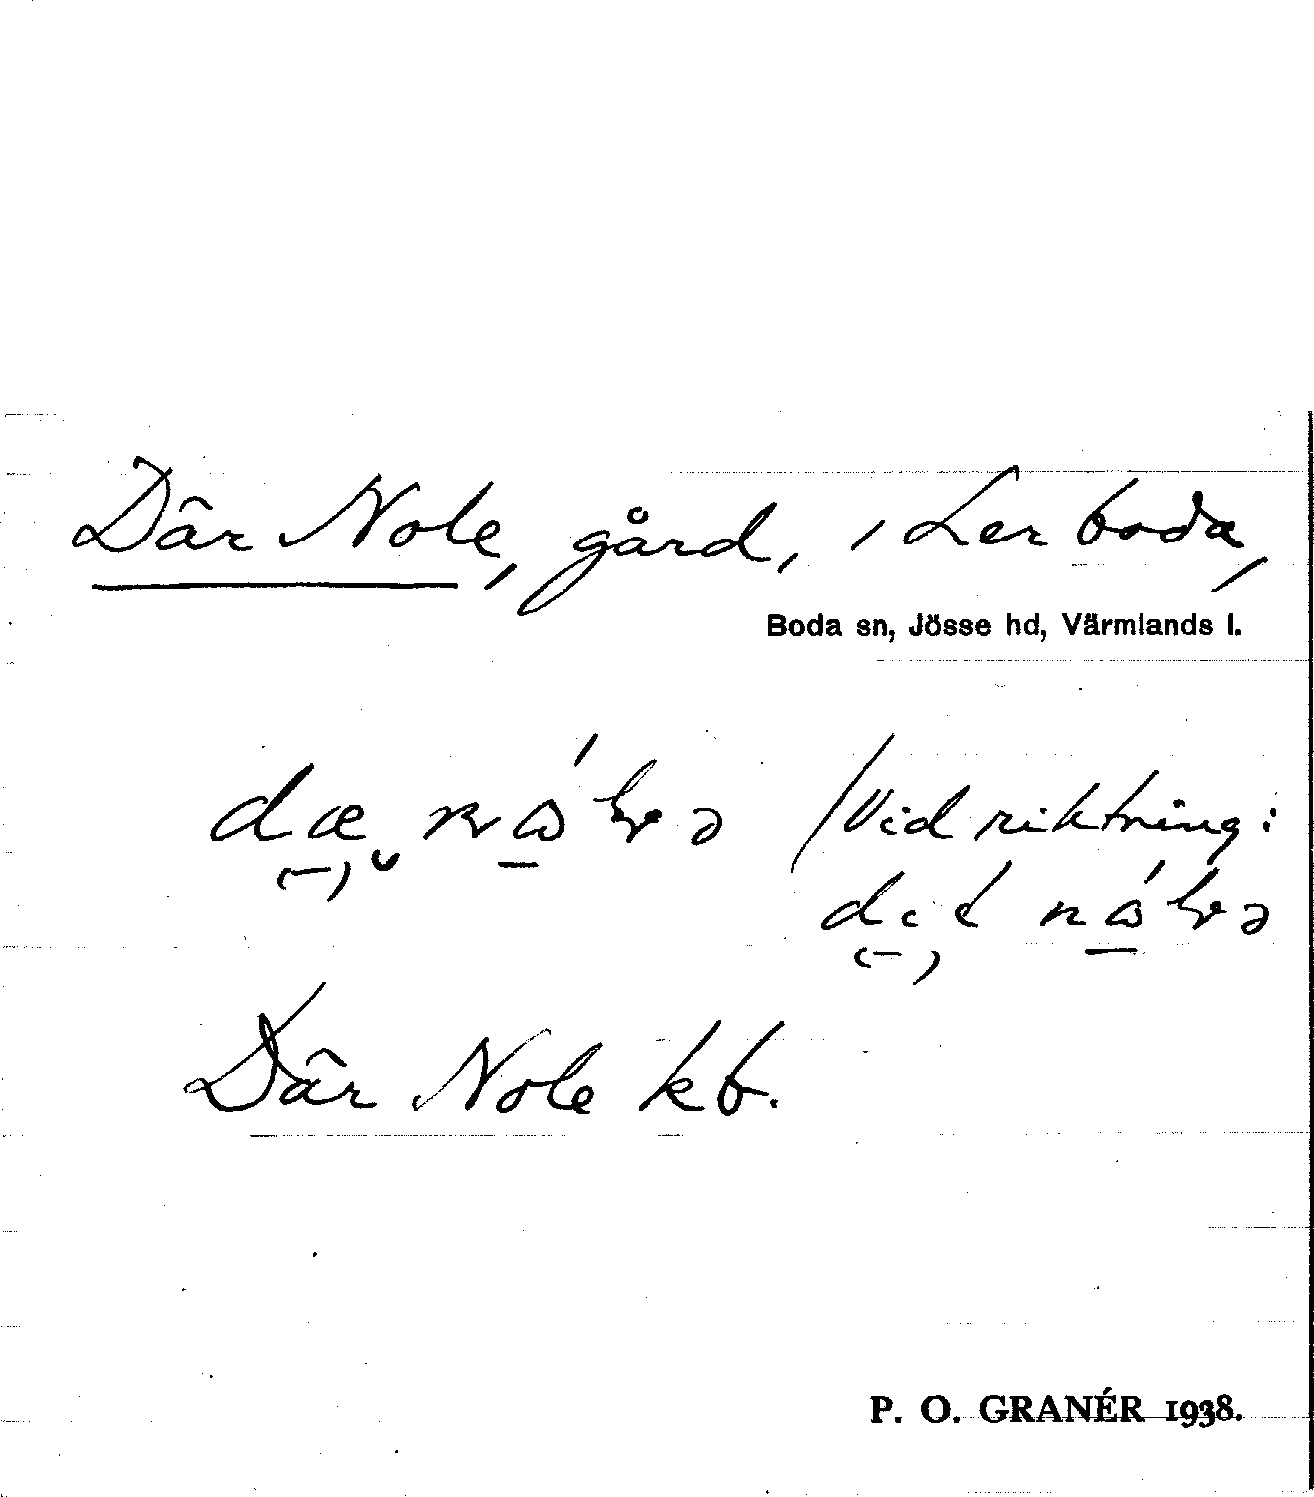 Där Nole, gård, i Lerboda,
Boda sn, Jösse hd, Värmlands l.
/Vid riktning:
Där Nole kb.
P. O. GRANÉR 1938.